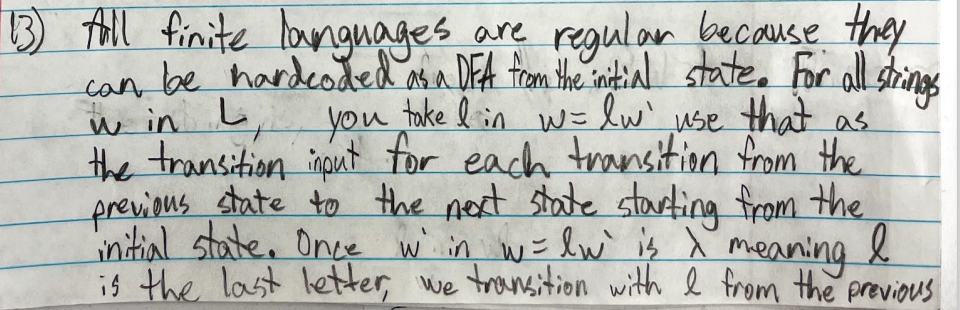 13) All finite languages are regular because they
can be hardcoded as a DFA from the initial state. For all strings
w in L, you take l in w = lw' use that as
the transition input for each transition from the
previous state to the next state starting from the
initial state. Once w' in w = lw' is λ meaning l
is the last letter, we transition with l from the previous